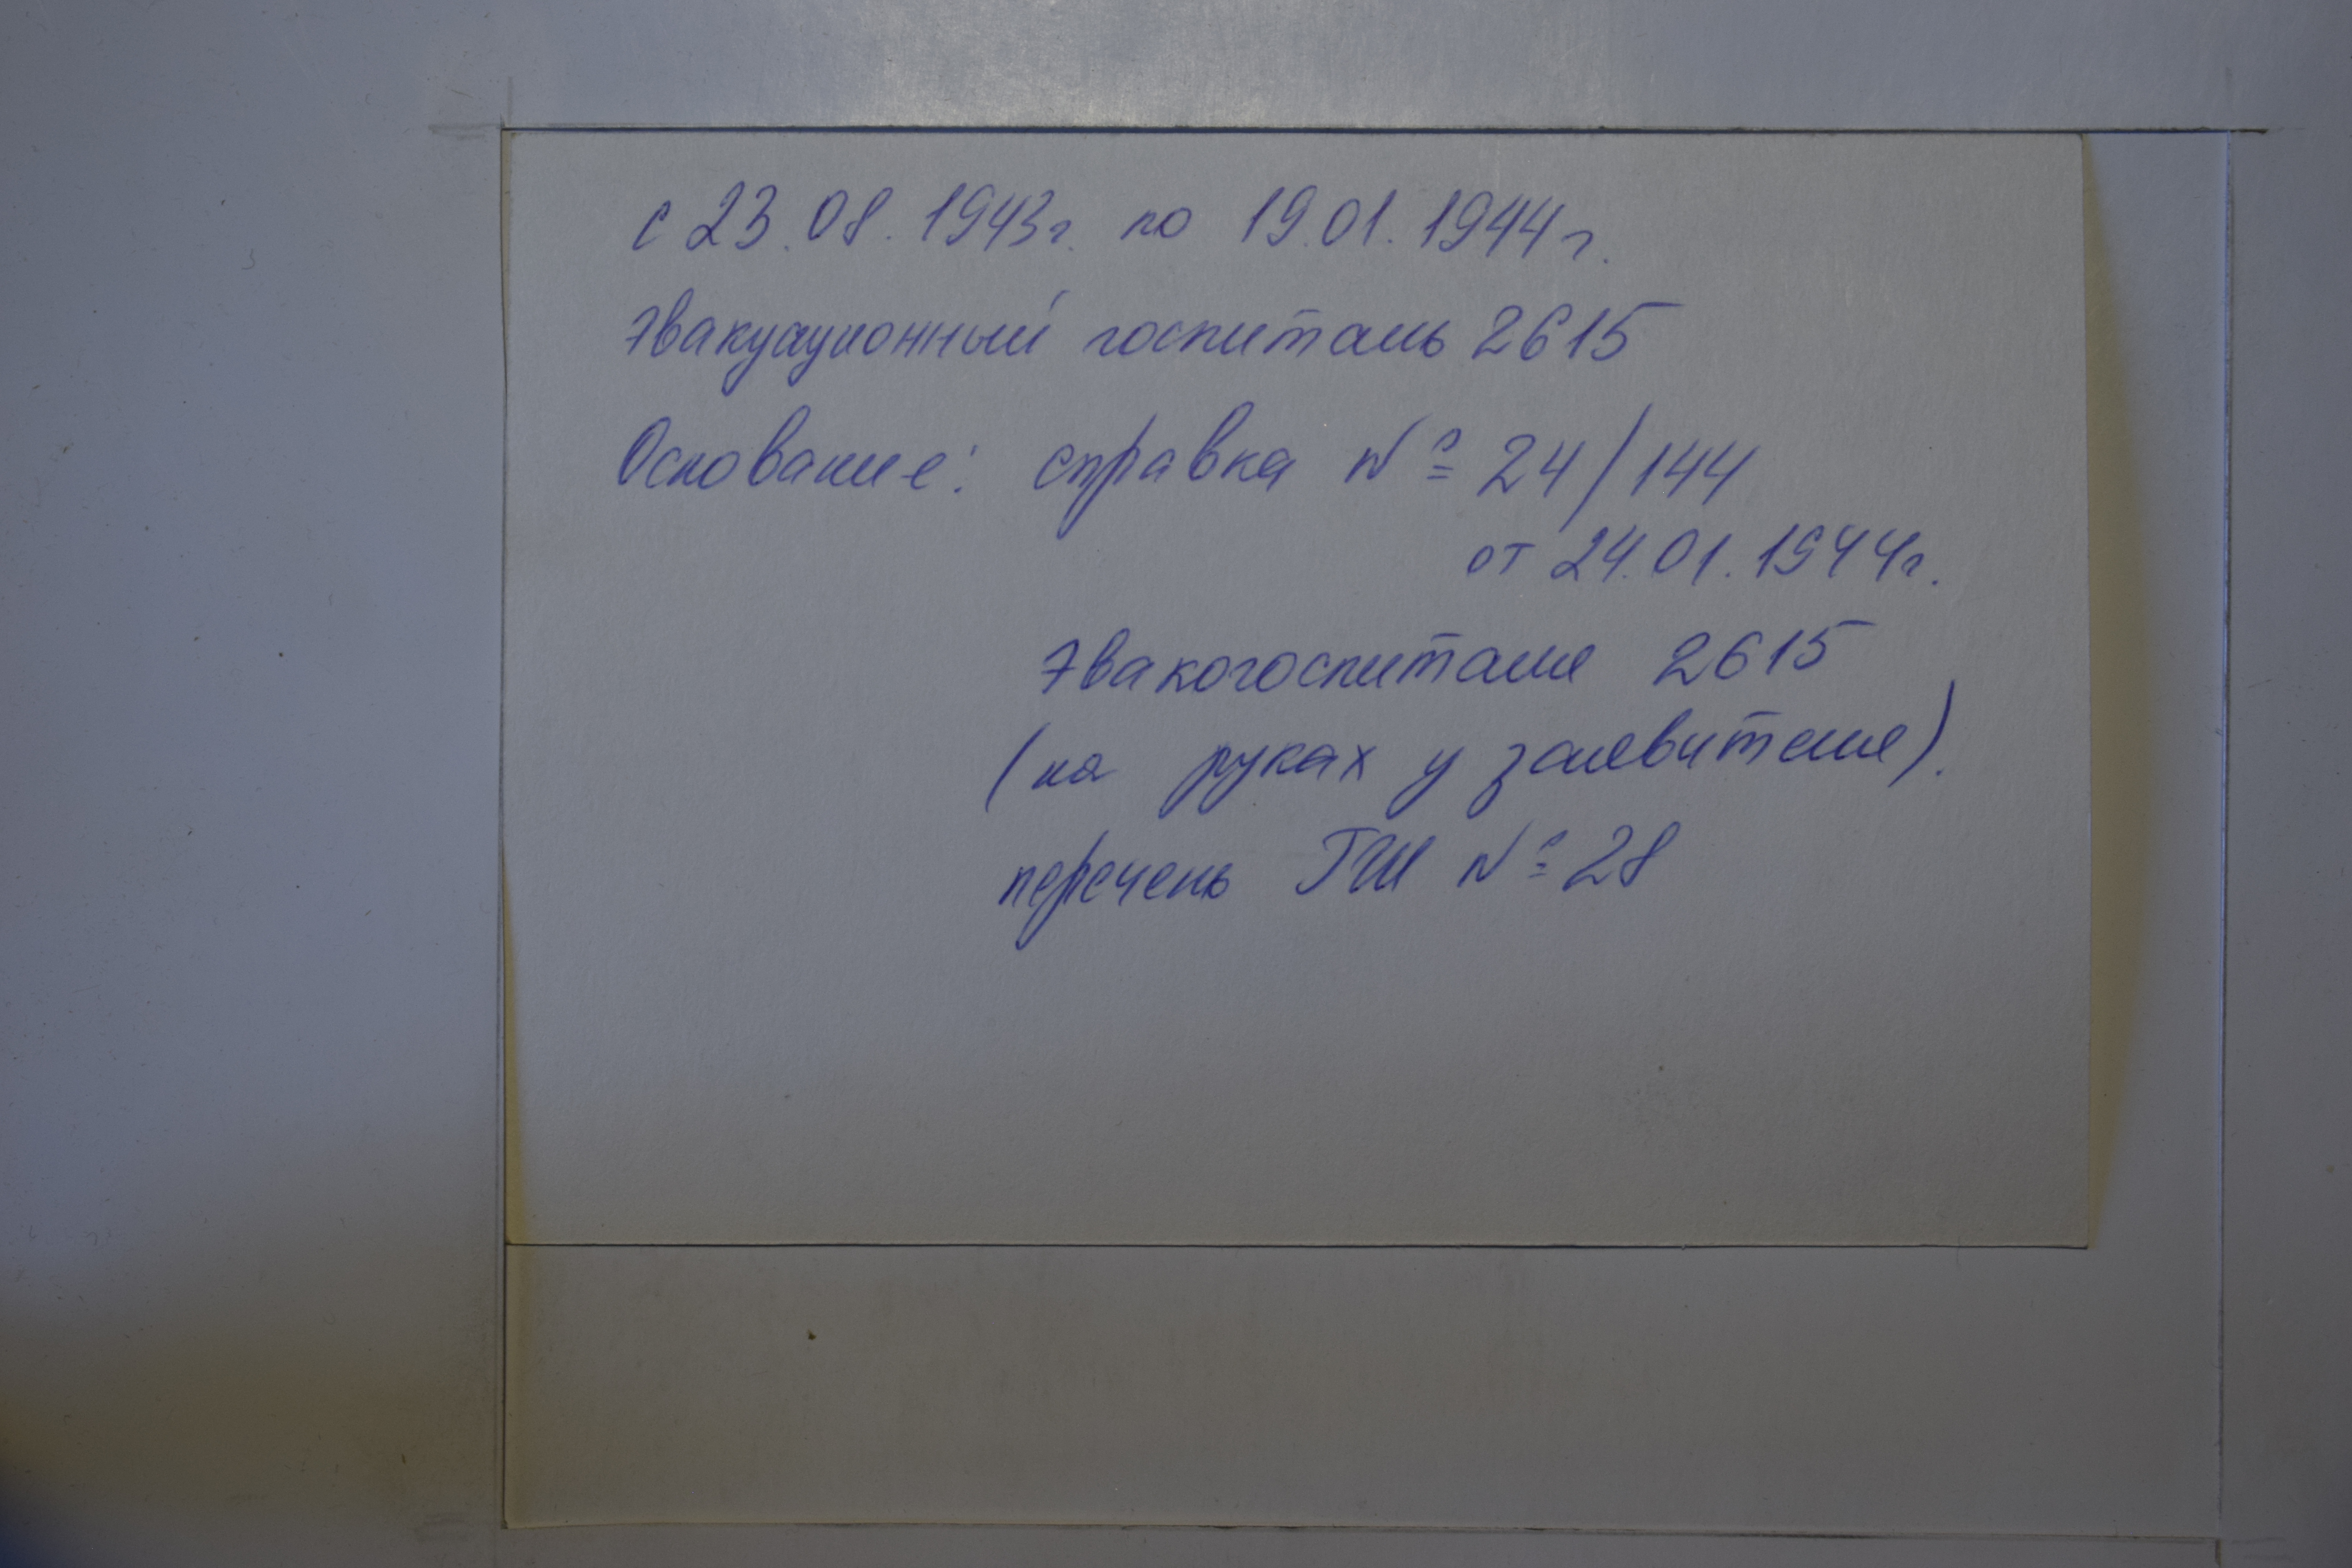 с 23.08.1943г. по 19.01.1944г.
эвакуационный госпиталь 2615
Основание: справка № 24/144
от 24.01.1944г.
эвакогоспиталя 2615
(на руках у заявителя).
перечень ГШ № 28